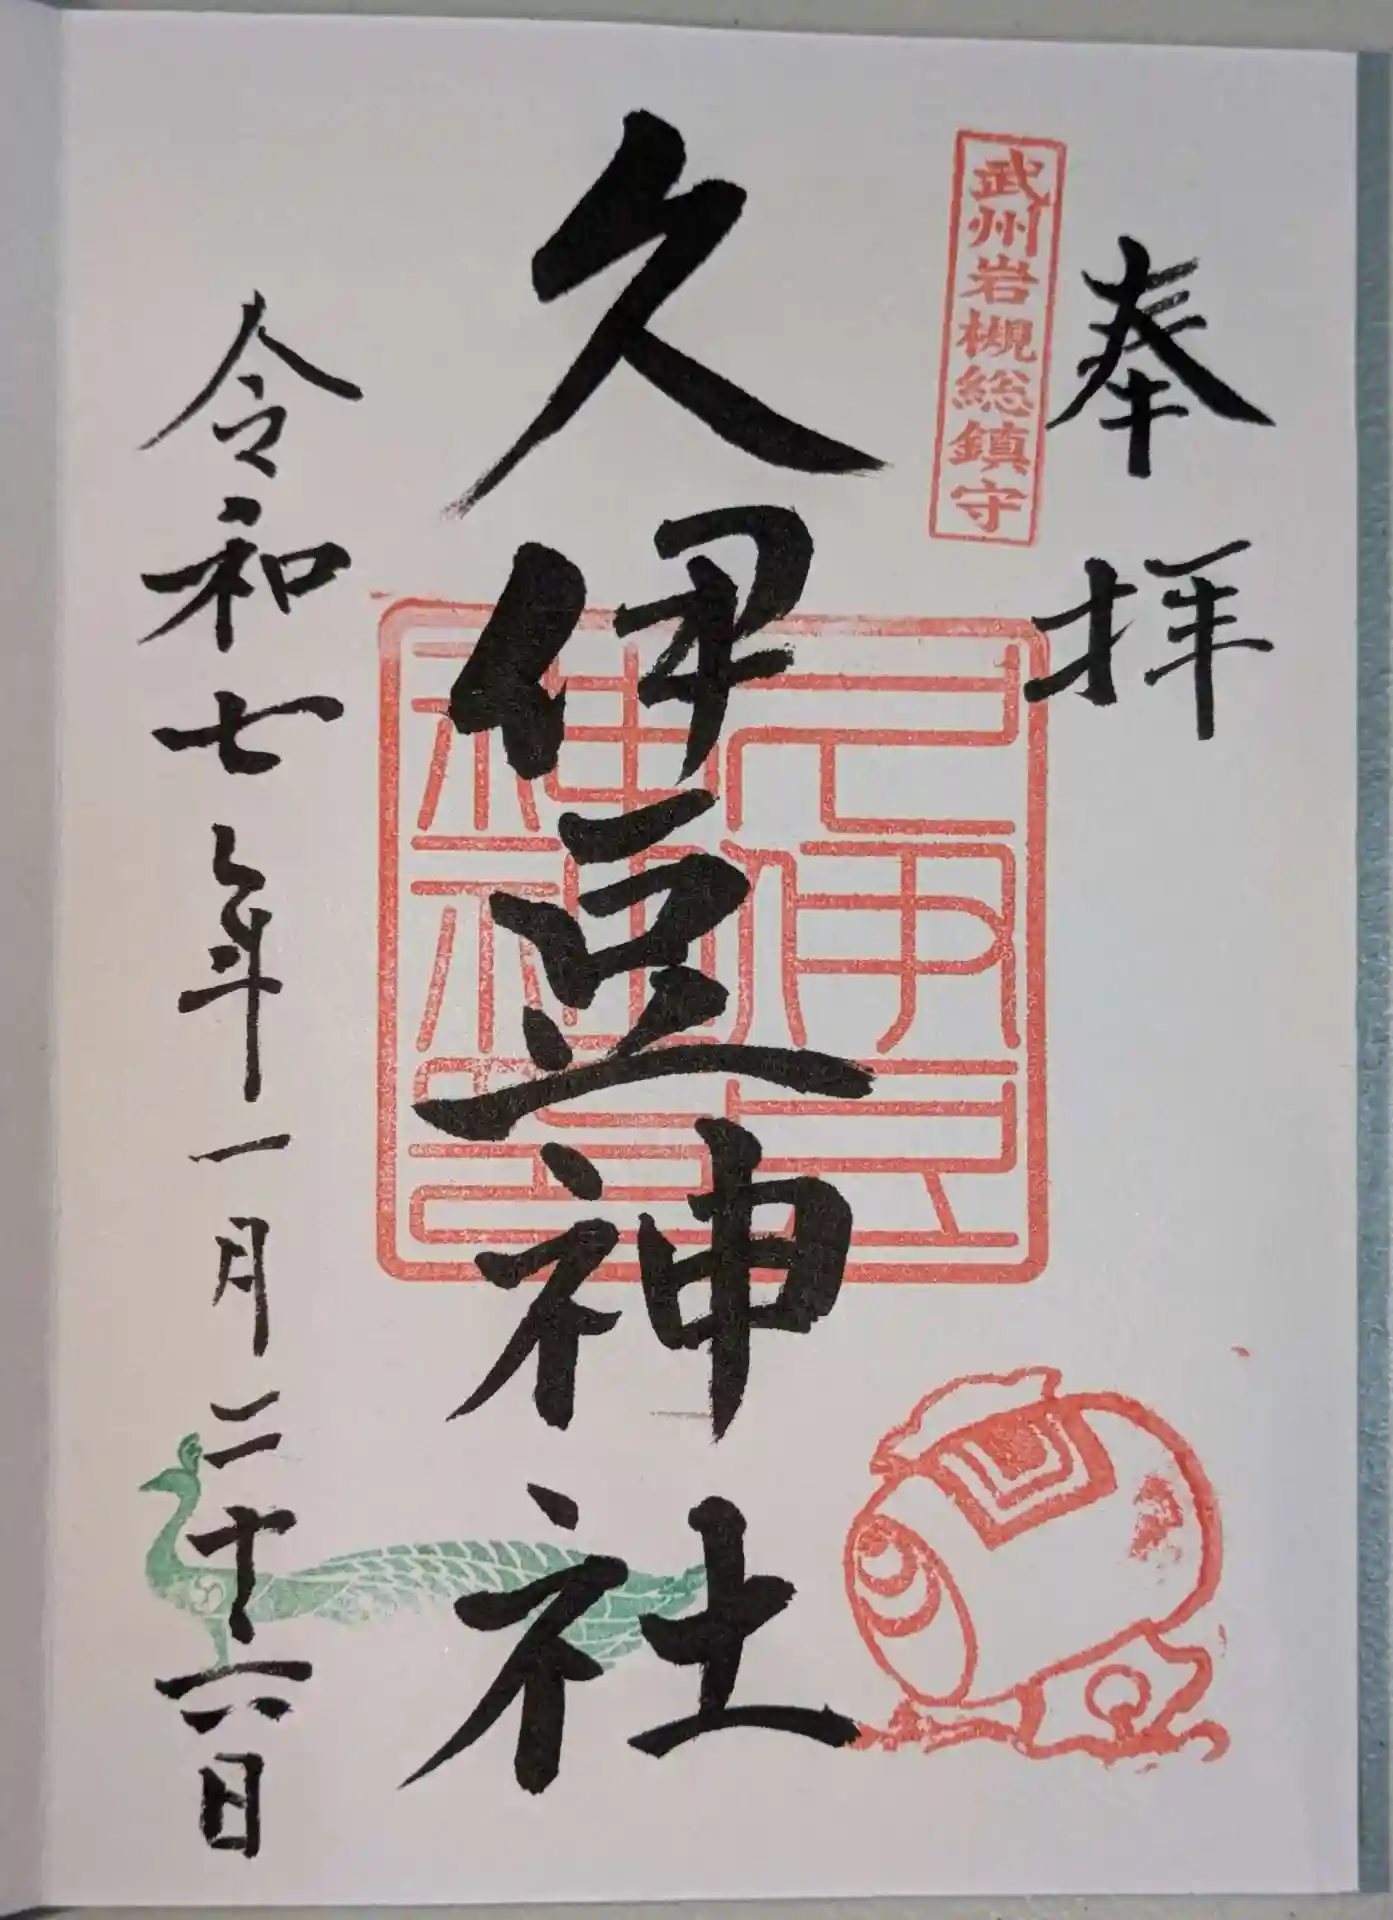 奉拝
武州岩槻総鎮守
久伊豆神社
令和七年一月二十六日